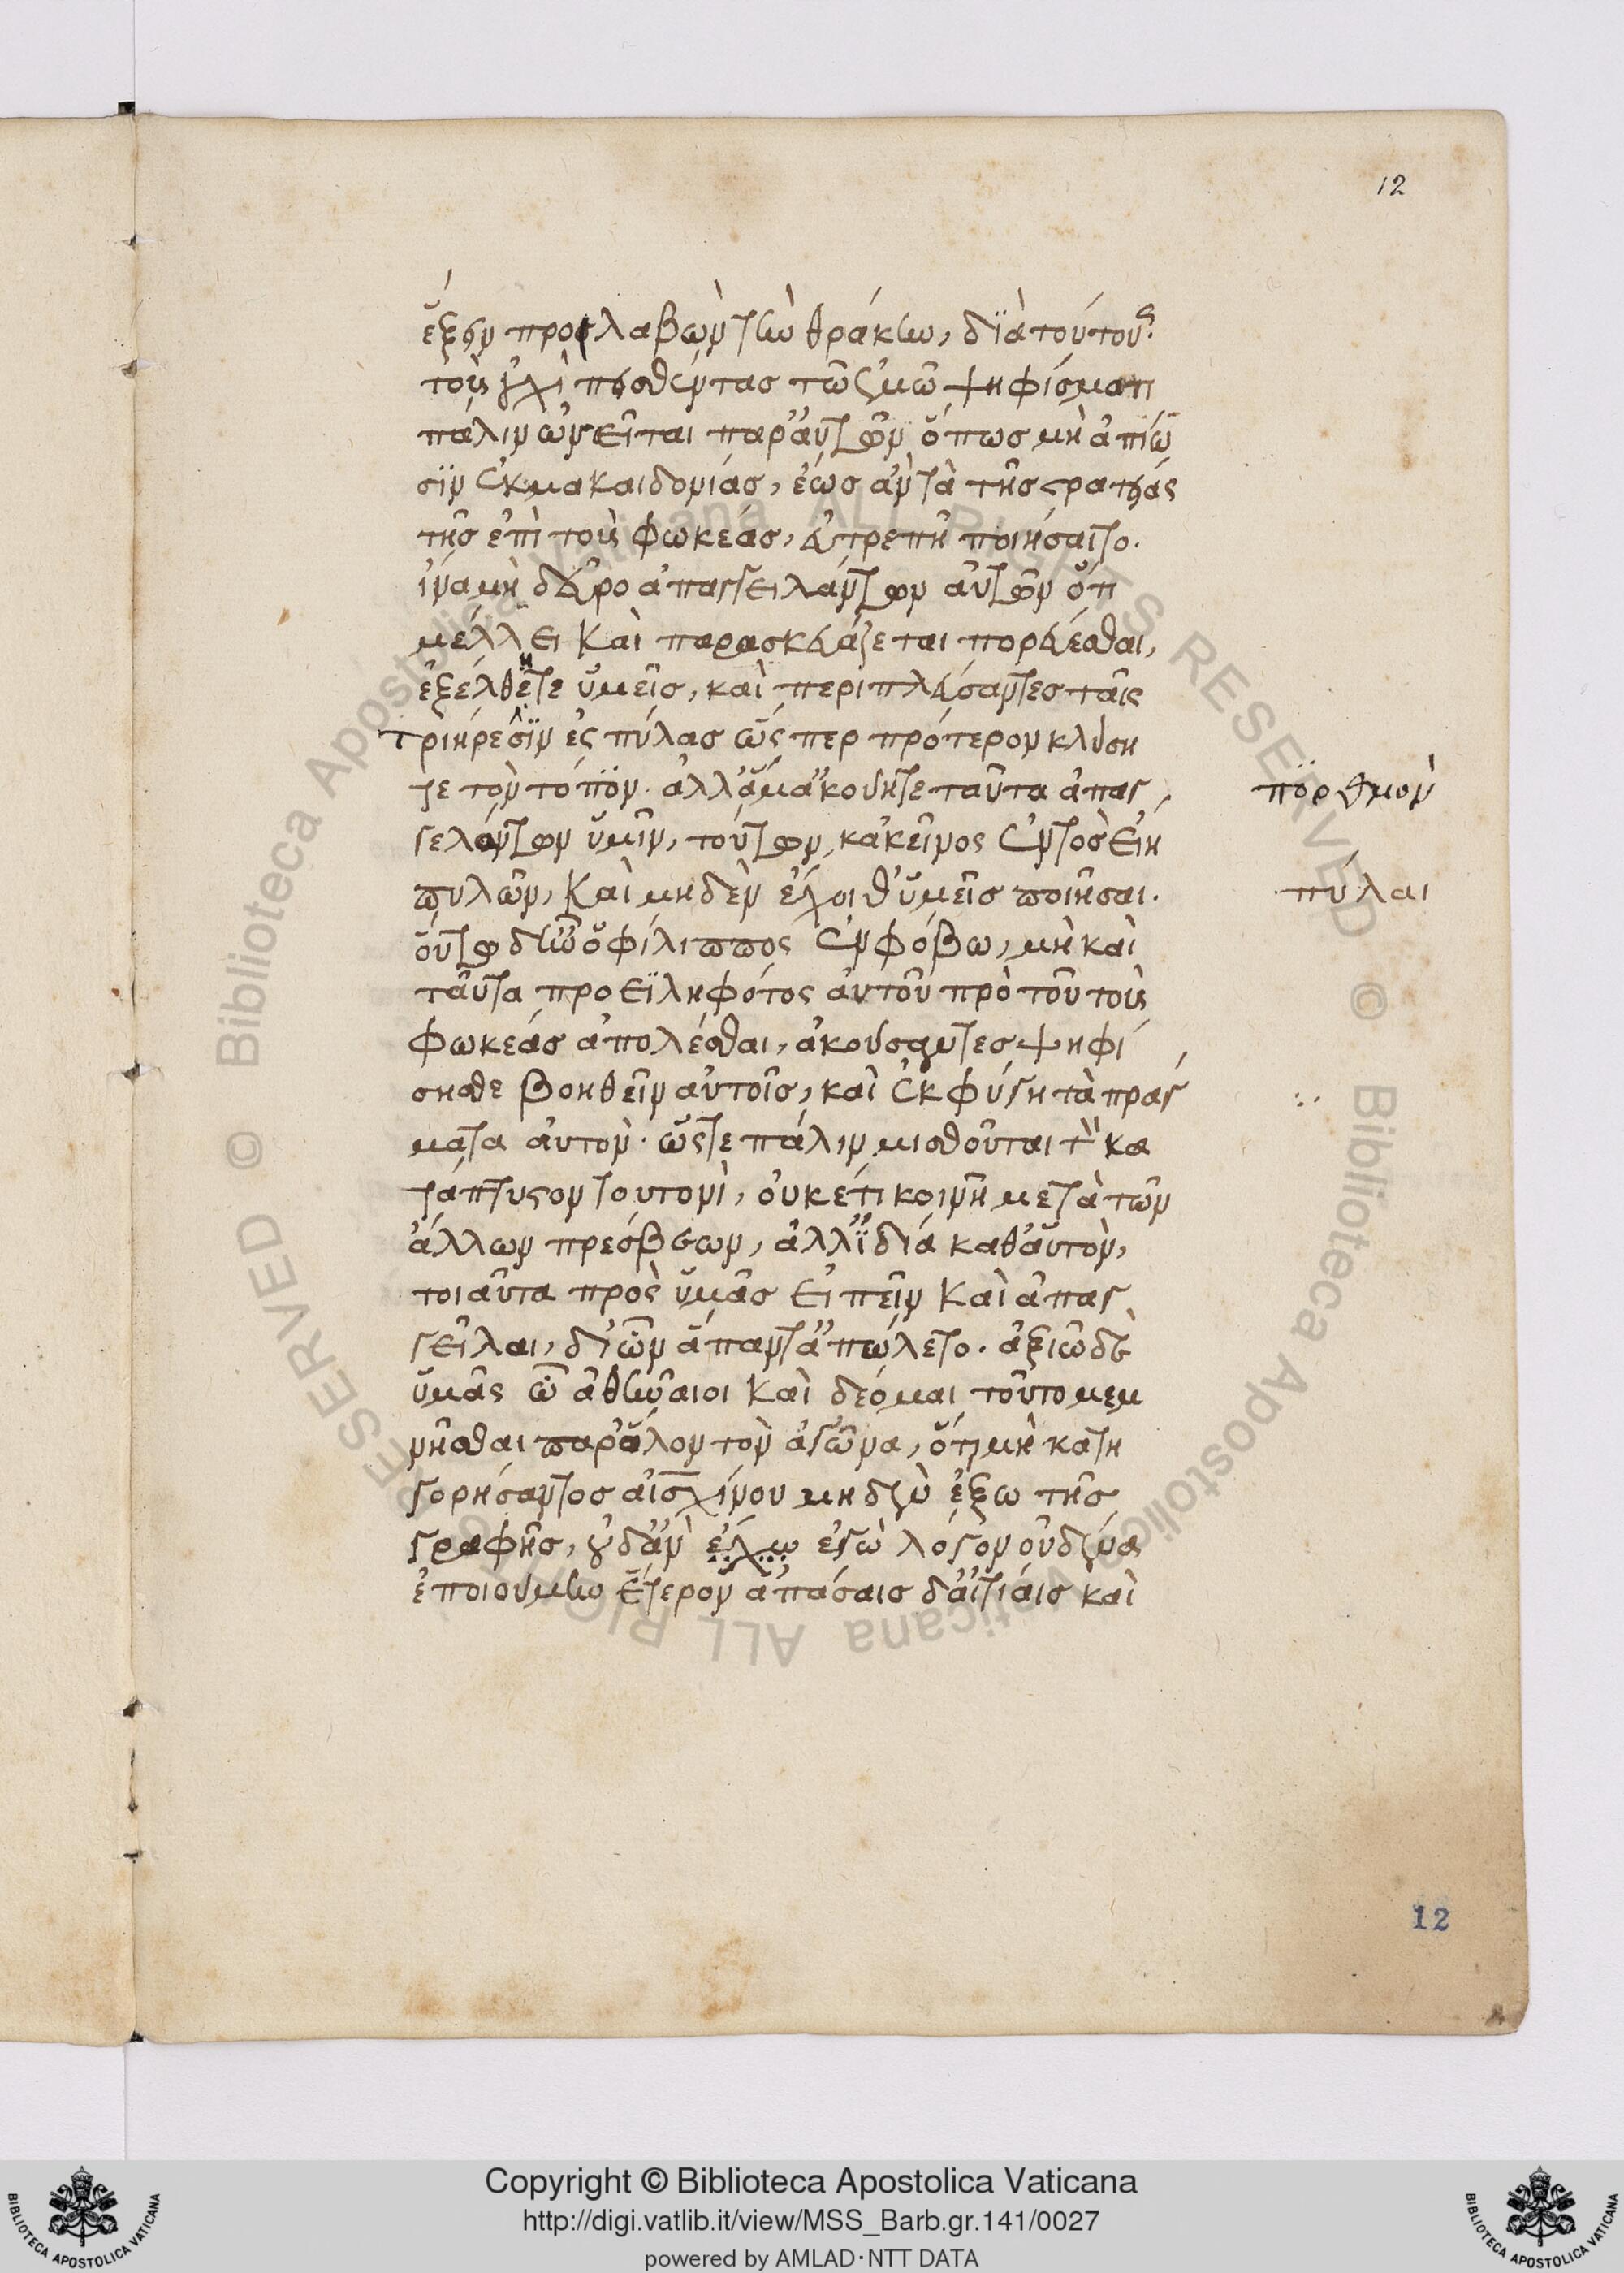 12
ἕξειν προσλαβὼν τὴν θράκην, διὰ τούτους
τοὺς οὐχὶ πεισθέντας τῶ ἐμῶ ψηφίσματι
πάλιν ὠνεῖται παρ' αὐτῶν ὅπως μὴ ἀπίω
σιν ἐκ μακαιδονίας, ἕως ἂν τὰ τῆς στρατείας
τῆς ἐπὶ τοὺς φωκέας, εὐτρεπῆ ποιήσαιτο.
ἵνα μὴ δεῦρο ἀπαγγειλάντων αὐτῶν ὅτι
μέλλει καὶ παρασκευάζεται πορεύεσθαι,
ἐξέλθητε ὑμεῖς, καὶ περιπλεύσαντες ταῖς
τριήρεσιν εἰς πύλας ὥσπερ πρότερον κλύση
τε τὸν τόπον. ἀλλ' ἅμ' ἀκούητε ταῦτα ἀπαγ
γελόντων ὑμῖν, τούτων, κἀκεῖνος ἐντὸς εἴη
πυλῶν, καὶ μηδὲν ἔχοιθ' ὑμεῖς ποιῆσαι.
οὕτω δ' ἦν ὁ φίλιππος ἐν φόβω, μὴ καὶ
ταῦτα προειληφότος αὐτοῦ πρὸ τοῦ τοὺς
φωκέας ἀπολέσθαι, ἀκούσαντες ψηφί
σησθε βοηθεῖν αὐτοῖς, καὶ ἐκφύγη τὰ πράγ
ματα αὐτόν. ὥστε πάλιν μισθοῦται τὸν κα
τάπτυστον τουτονὶ, οὐκέτι κοινῆ μετὰ τῶν
ἄλλων πρέσβεων, ἀλλ' ἰδία καθ' αὑτὸν,
τοιαῦτα πρὸς ὑμᾶς εἰπεῖν καὶ ἀπαγ
γεῖλαι, δι' ὧν ἅπαντ' ἀπώλετο. ἀξιῶ δὲ
ὑμᾶς ὦ ἀθηναῖοι καὶ δέομαι τοῦτο μεμ
νῆσθαι παρ' ὅλον τὸν ἀγῶνα, ὅτι μὴ κατη
γορήσαντος αἰσχίνου μηδὲν ἔξω τῆς
γραφῆς, οὐδ' ἂν ἔχω ἐγὼ λόγον οὐδένα
ἐποιούμην ἕτερον ἁπάσαις δ' αἰτίαις καὶ
πόρθμον
πύλαι
12
© Biblioteca Apostolica Vaticana ALL RIGHTS RESERVED © Biblioteca Apostolica Vaticana ALL RIGHTS RESERVED
Copyright © Biblioteca Apostolica Vaticana
http://digi.vatlib.it/view/MSS_Barb.gr.141/0027
powered by AMLAD·NTT DATA
BIBLIOTECA APOSTOLICA VATICANA
BIBLIOTECA APOSTOLICA VATICANA